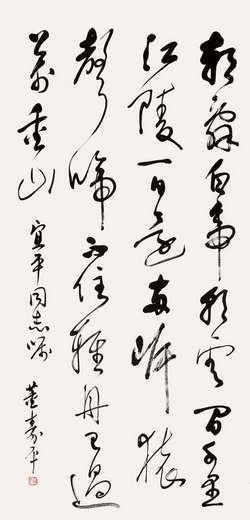 朝辭白帝彩雲間千里
江陵一日還兩岸猿
聲啼不住輕舟已過
萬重山 宜平同志嘱 董壽平